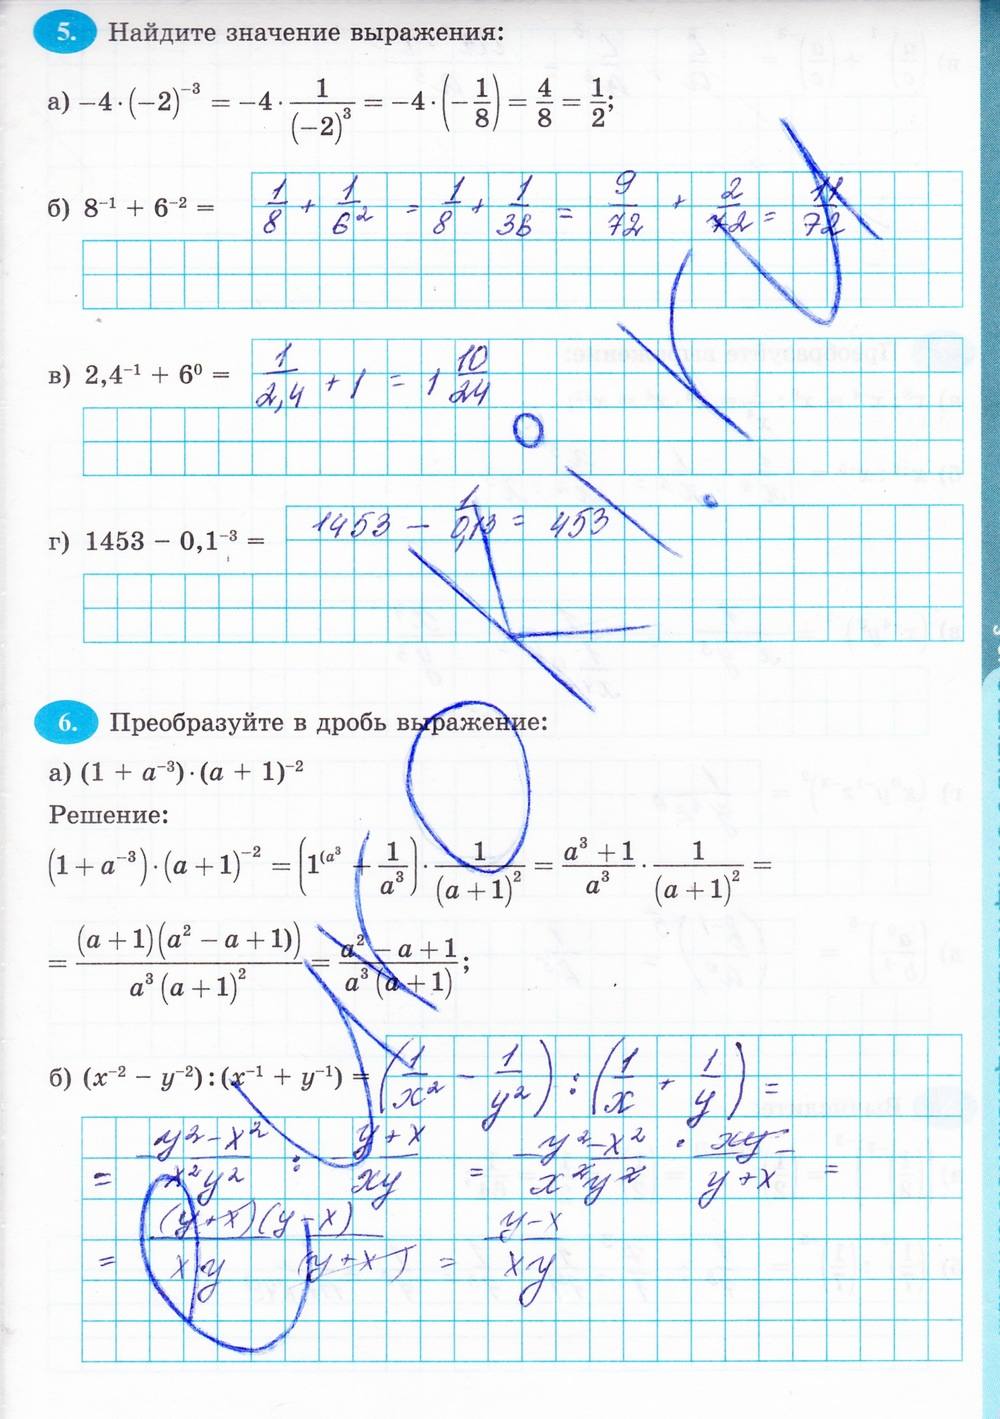 5. Найдите значение выражения:
а) −4·(−2)⁻³ = −4 · 1/(−2)³ = −4 · (−1/8) = 4/8 = 1/2;
б) 8⁻¹ + 6⁻² = 1/8 + 1/6² = 1/8 + 1/36 = 9/72 + 2/72 = 11/72
в) 2,4⁻¹ + 6⁰ = 1/2,4 + 1 = 1 10/24
г) 1453 − 0,1⁻³ = 1453 − 1/0,1³ = 453
6. Преобразуйте в дробь выражение:
а) (1 + a⁻³)·(a + 1)⁻²
Решение:
(1 + a⁻³)·(a + 1)⁻² = (1^(a³ + 1/a³) · 1/(a + 1)² = (a³ + 1)/a³ · 1/(a + 1)² =
= (a + 1)(a² − a + 1))/a³(a + 1)² = (a² − a + 1)/a³(a + 1);
б) (x⁻² − y⁻²):(x⁻¹ + y⁻¹) = (1/x² − 1/y²) : (1/x + 1/y) =
= (y² − x²)/x²y² : (y + x)/xy = (y² − x²)/x²y² · xy/(y + x) =
= (y + x)(y − x)/xy(y + x) = (y − x)/xy